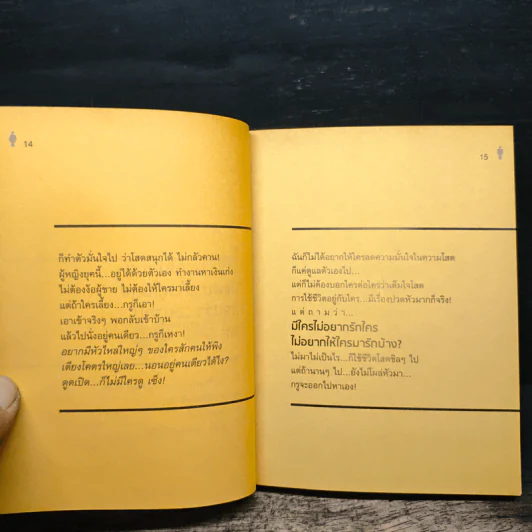 14
ก็ทำตัวมั่นใจไป ว่าโสดสนุกได้ ไม่กลัวคาน!
ผู้หญิงยุคนี้...อยู่ได้ด้วยตัวเอง ทำงานหาเงินเก่ง
ไม่ต้องง้อผู้ชาย ไม่ต้องให้ใครมาเลี้ยง
แต่ถ้าใครเลี้ยง...กรูก็เอา!
เอาเข้าจริงๆ พอกลับเข้าบ้าน
แล้วไปนั่งอยู่คนเดียว...กรูก็เหงา!
อยากมีหัวไหล่ใหญ่ๆ ของใครสักคนให้พิง
เตียงโคตรใหญ่เลย...นอนอยู่คนเดียวได้ไง?
ตูดเปิด...ก็ไม่มีใครดู เซ็ง!
15
ฉันก็ไม่ได้อยากให้ใครลดความมั่นใจในความโสด
ก็แค่ดูแลตัวเองไป...
แต่ก็ไม่ต้องบอกใครต่อใครว่าเต็มใจโสด
การใช้ชีวิตอยู่กับใคร...มีเรื่องปวดหัวมากก็จริง!
แต่ถามว่า...
มีใครไม่อยากรักใคร
ไม่อยากให้ใครมารักบ้าง?
ไม่มาไม่เป็นไร...ก็ใช้ชีวิตโสดชิลๆ ไป
แต่ถ้านานๆ ไป...ยังไม่โผล่หัวมา...
กรูจะออกไปหาเอง!